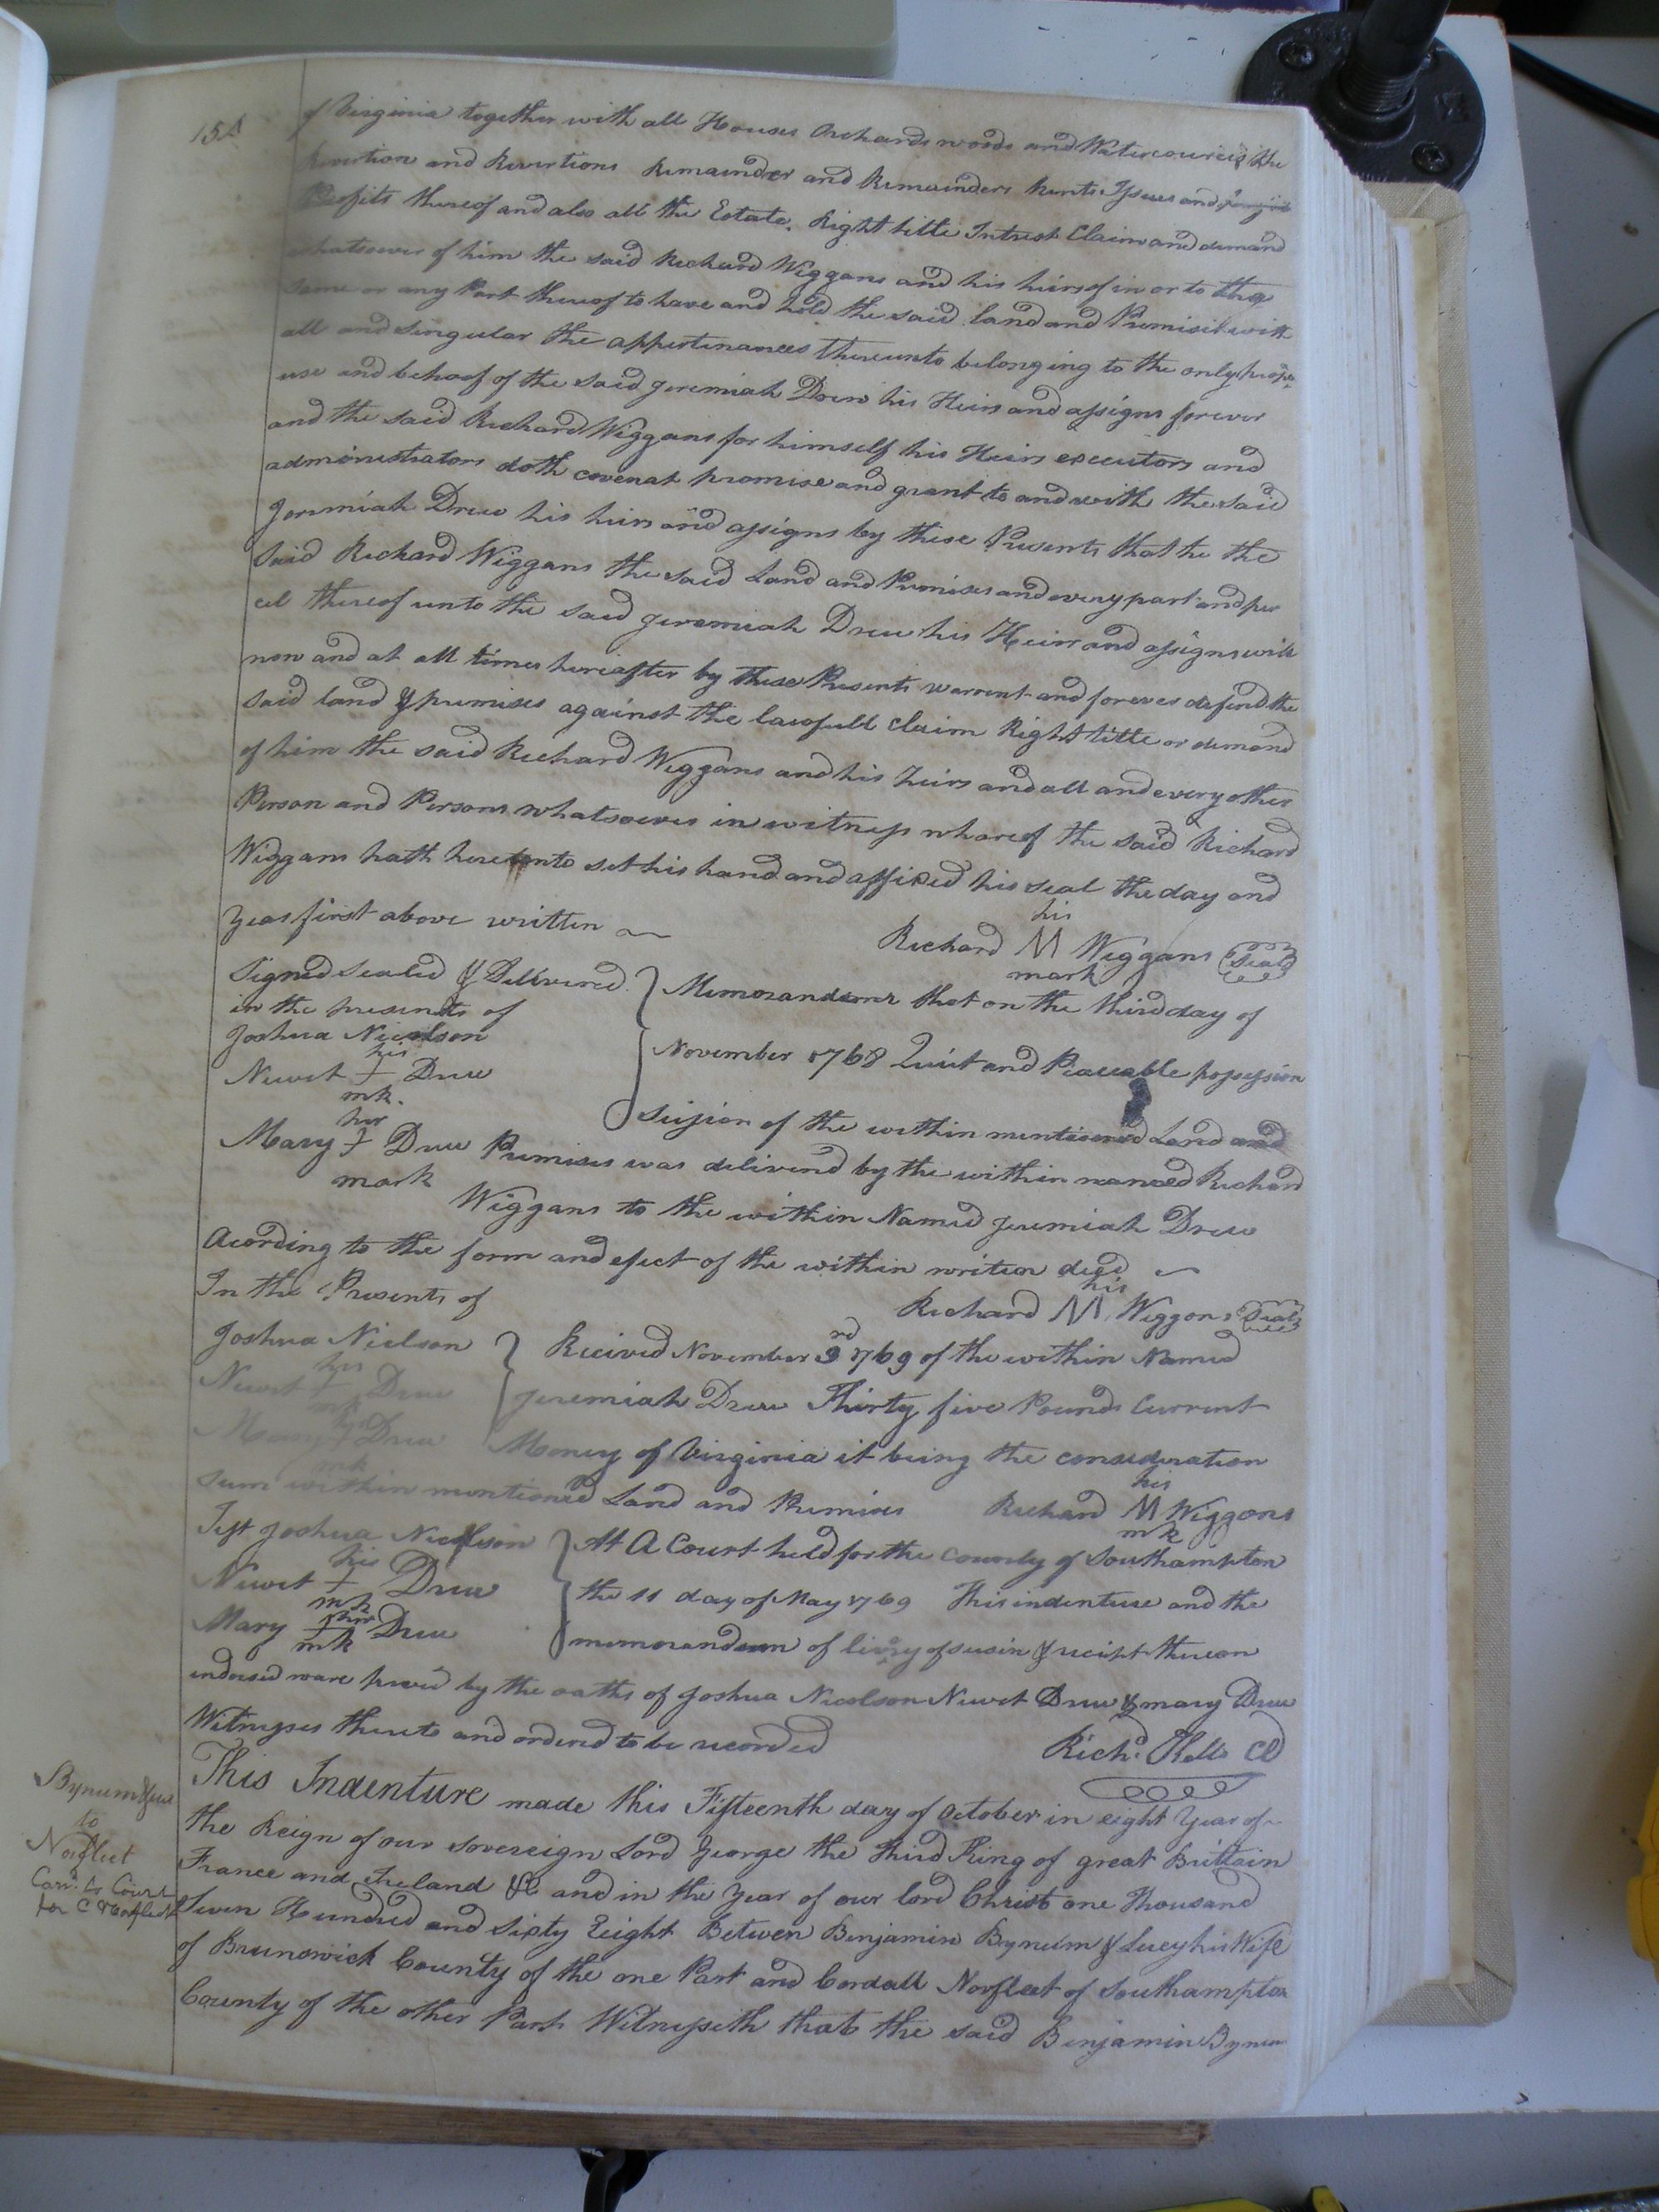 154
of Virginia together with all Houses Orchards woods and Watercourses the
Revertion and Revertions Remainder and Remainders Rents Issues and
Profits thereof and also all the Estate, Right title Intrest Claim and demand
whatsoever of him the said Richard Wiggans and his heirs of in or to the
same or any Part thereof to have and hold the said land and Premisis with
all and singular the appertinances thereunto belonging to the only prop
use and behoof of the said Jeremiah Drew his Heirs and assigns forever
and the said Richard Wiggans for himself his Heirs executors and
administrators doth covenat promise and grant to and with the said
Jeremiah Drew his heirs and assigns by these Presents that he the
said Richard Wiggans the said Land and Premises and every part and per
cel thereof unto the said Jeremiah Drew his Heirs and assigns will
now and at all times hereafter by these Presents warrent and forever defend the
said land & premises against the lawfull claim Right title or demand
of him the said Richard Wiggans and his heirs and all and every other
Person and Persons whatsoever in witness whareof the said Richard
Wiggans hath hereunto set his hand and affixed his seal the day and
Year first above written
his
Richard M Wiggans Seal
mark
Signed Sealed & Delivered
in the presents of
Joshua Nicolson
his
Newit + Drew
mk.
her
Mary + Drew
mark
Memorandum that on the third day of
November 1768 Quiet and Peaceable possession
Seision of the within mentioned Land and
Premises was deliverd by the within named Richard
Wiggans to the within Named Jeremiah Drew
Acording to the form and efect of the within writen deed
In the Presents of
his
Richard M Wiggons Seal
Joshua Nicolson
his
Newit + Drew
mk
her
Mary + Drew
mk
Received November 3rd 1769 of the within Named
Jeremiah Drew Thirty five Pounds Current
Money of Virginia it being the consideration
sum within mentioned Land and Premises
his
Richard M Wiggons
mk
Test Joshua Nicolson
his
Newit + Drew
mk
her
Mary + Drew
mk
At A Court held for the County of Southampton
the 11 day of May 1769 This indenture and the
memorandum of livery of seisin & recipt thereon
endorsed ware prov'd by the oaths of Joshua Nicolson Newit Drew & mary Drew
Witnesses thereto and ordered to be recorded
Richd. Kello CC
Bynum & ux
to
Norfleet
This Indenture made this Fifteenth day of October in eight Year of
the Reign of our sovereign Lord George the third King of great Brittain
France and Ireland &c and in the Year of our lord Christ one Thousand
Seven Hundred and Sixty Eight Betwen Benjamin Bynum & Lucy his Wife
of Brunswick County of the one Part and Cordall Norfleet of Southampton
County of the other Part Witnesseth that the said Benjamin Bynum